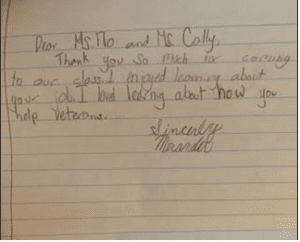 Dear Ms. Flo and Ms Colly,
Thank you so much for coming
to our class I enjoyed learning about
your job. I about how you
help Veterans.
Sincerly